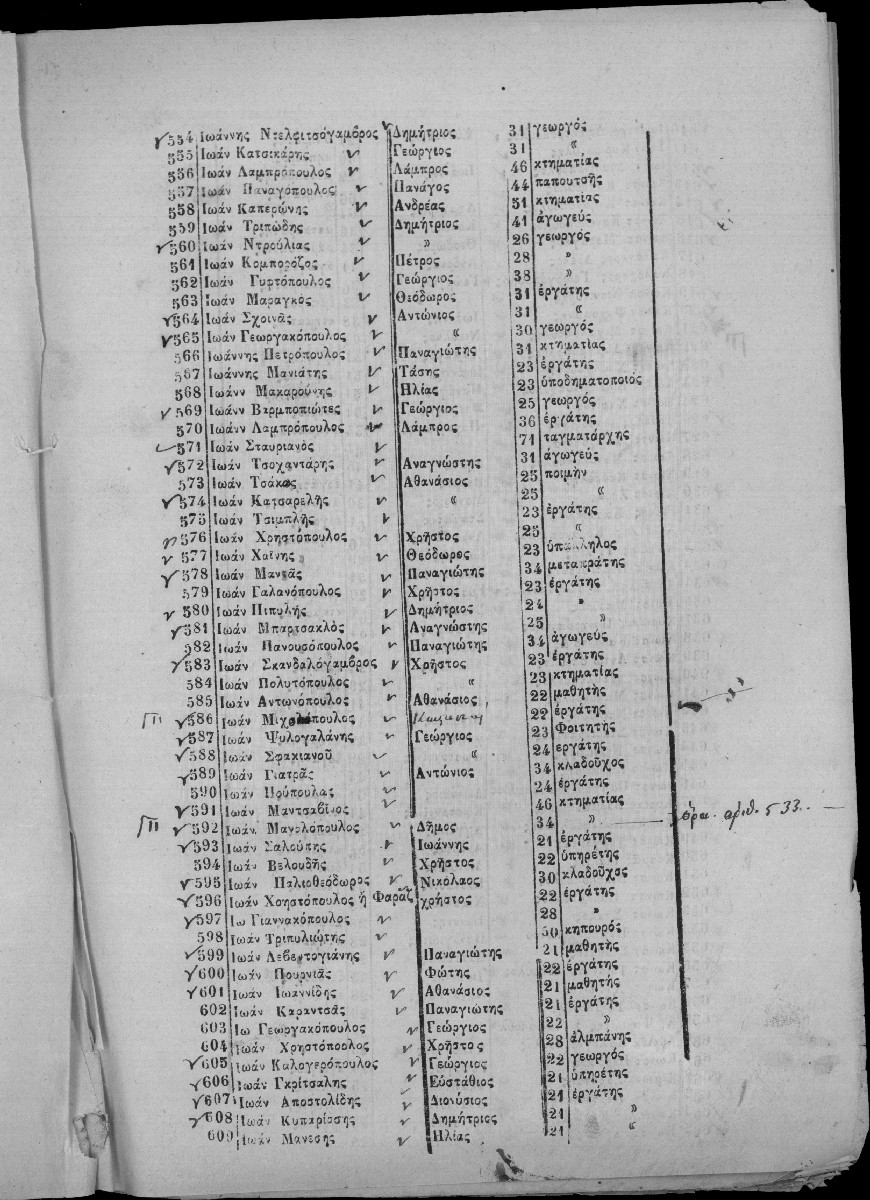 554 Ἰωάννης Ντελφιτσόγαμβρος Δημήτριος 31 γεωργός
555 Ἰωάν Κατσικάρης Γεώργιος 31 «
556 Ἰωάν Λαμπρόπουλος Λάμπρος 46 κτηματίας
557 Ἰωάν Παναγόπουλος Πανάγος 44 παπουτσῆς
558 Ἰωάν Καπερώνης Ανδρέας 51 κτηματίας
559 Ἰωάν Τριπώδης Δημήτριος 41 ἀγωγεύς
560 Ἰωάν Ντρούλιας » 26 γεωργός
561 Ἰωάν Κομπορόζος Πέτρος 28 »
562 Ἰωάν Γυφτόπουλος Γεώργιος 38 »
563 Ἰωάν Μαραγκος Θεόδωρος 31 ἐργάτης
564 Ἰωάν Σχοινᾶς Αντώνιος 31 «
565 Ἰωάν Γεωργακόπουλος « 30 γεωργός
566 Ἰωάννης Πετρόπουλος Παναγιώτης 31 κτηματίας
567 Ἰωάννης Μανιάτης Τάσης 23 ἐργάτης
568 Ἰωάνν Μακαρούνης Ηλίας 23 ὑποδηματοποιός
569 Ἰωάνν Βαρμποπιώτες Γεώργιος 25 γεωργός
570 Ἰωάνν Λαμπρόπουλος Λάμπρος 36 ἐργάτης
571 Ἰωάν Σταυριανὸς 71 ταγματάρχης
572 Ἰωάν Τσοχαντάρης Αναγνώστης 31 ἀγωγεύς
573 Ἰωάν Τσάκας Αθανάσιος 25 ποιμὴν
574 Ἰωάν Κατσαρελῆς « 25 «
575 Ἰωάν Τσιμπλῆς 23 ἐργάτης
576 Ἰωάν Χρηστόπουλος Χρῆστος 25 «
577 Ἰωάν Χαΐνης Θεόδωρος 23 ὑπάλληλος
578 Ἰωάν Μαντᾶς Παναγιώτης 34 μεταπράτης
579 Ἰωάν Γαλανόπουλος Χρῆστος 23 ἐργάτης
580 Ἰωάν Πιπυλής Δημήτριος 24 »
581 Ἰωάν Μπαρτσακλὸς Αναγνώστης 25 »
582 Ἰωάν Πανουσόπουλος Παναγιώτης 34 ἀγωγεύς
583 Ἰωάν Σκανδαλόγαμβρος Χρῆστος 23 ἐργάτης
584 Ἰωάν Πολυτόπουλος « 23 κτηματίας
585 Ἰωάν Αντωνόπουλος Αθανάσιος 22 μαθητὴς
586 Ἰωάν 22 ἐργάτης
587 Ἰωάν Ψυλογαλάνης Γεώργιος 23 Φοιτητὴς
588 Ἰωάν Σφακιανοῦ « 24 εργάτης
589 Ἰωάν Γιατρᾶς Αντώνιος 34 κλαδοῦχος
590 Ἰωάν Πούπουλας 24 ἐργάτης
591 Ἰωάν Μαντσαβῖνος 46 κτηματίας
592 Ἰωάν. Μανολόπουλος Δῆμος 34 » ὅρα. αριθ. 533.
593 Ἰωάν Σαλούπης Ιωάννης 21 ἐργάτης
594 Ἰωάν Βελουδῆς Χρῆστος 22 ὑπηρέτης
595 Ἰωάν Παλιοθεόδωρος Νικόλαος 30 κλαδοῦχος
596 Ἰωάν Χρηστόπουλος ἢ Φαράζ χρήστος 22 ἐργάτης
597 Ἰω Γιαννακόπουλος 28 »
598 Ἰωάν Τριπυλιώτης 50 κηπουρός
599 Ἰωάν Λεβεντογιάνης Παναγιώτης 21 μαθητής
600 Ἰωάν Πουρνιᾶς Φώτης 22 ἐργάτης
601 Ἰωάν Ιωαννίδης Αθανάσιος 21 μαθητής
602 Ἰωάν Καραντσᾶς Παναγιώτης 21 ἐργάτης
603 Ἰω Γεωργακόπουλος Γεώργιος 22 »
604 Ἰωάν Χρηστόποολος Χρῆστος 28 ἀλμπάνης
605 Ἰωάν Καλογερόπουλος Γεώργιος 22 γεωργός
606 Ἰωάν Γκρίτσαλης Εὐστάθιος 21 ὑπηρέτης
607 Ἰωάν Αποστολίδης Διονύσιος 21 ἐργάτης
608 Ἰωάν Κυπαρίσσης Δημήτριος 21 »
609 Ἰωάν Μανεσης Ηλίας 21 «